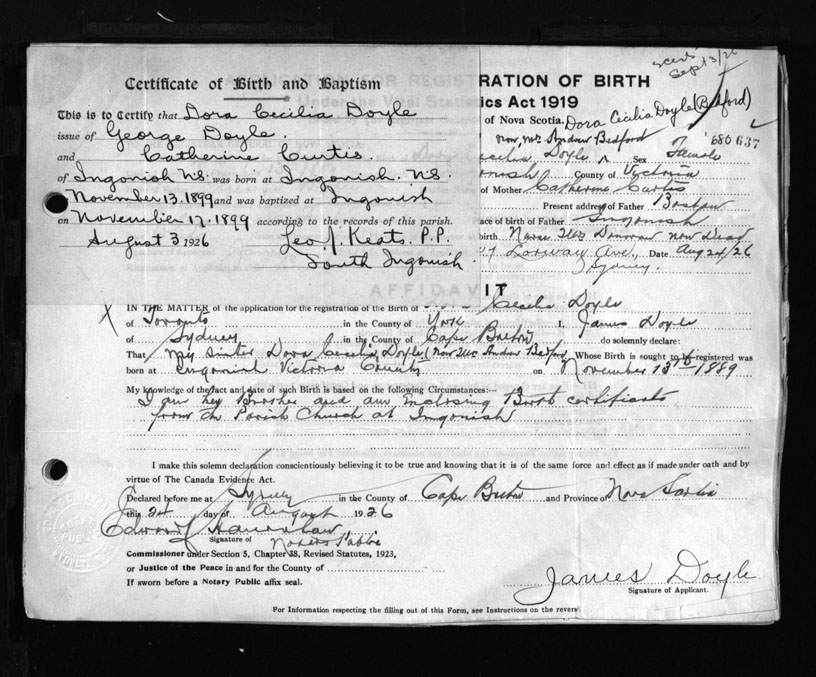 Certificate of Birth and Baptism
This is to Certify that Dora Cecilia Doyle
issue of George Doyle.
and Catherine Curtis.
of Ingonish N.S. was born at Ingonish. N.S.
November 13. 1899 and was baptized at Ingonish
on November 17. 1899 according to the records of this parish.
August 3 1926 Leo. J. Keats. P.P.
South Ingonish
Sept 3/26
RATION OF BIRTH
ics Act 1919
of Nova Scotia. Dora Cecilia Doyle (Bedford)
now Mrs Andrew Bedford 686637
Cecilia Doyle Sex Female
onish County of Victoria
of Mother Catherine Curtis
Present address of Father Boston
ace of birth of Father Ingonish
birth. Nurse Donovan now Dead
Ave., Date Aug 24/26
Sydney.
AFFIDAVIT
IN THE MATTER of the application for the registration of the Birth of Cecilia Doyle
of Toronto in the County of York I, James Doyle
of Sydney in the County of Cape Breton do solemnly declare:
That My sister Dora Cecilia Doyle (now Mrs Andrew Bedford Whose Birth is sought to be registered was
born at Ingonish Victoria County on November 13th 1889
My knowledge of the fact and date of such Birth is based on the following Circumstances:—
I am her Brother and am Enclosing Birth certificate
from the Parish Church at Ingonish
I make this solemn declaration conscientiously believing it to be true and knowing that it is of the same force and effect as if made under oath and by
virtue of The Canada Evidence Act.
Declared before me at Sydney in the County of Cape Breton and Province of Nova Scotia
this 24 day of August 1926
Signature of Notary Public
Commissioner under Section 5, Chapter 38, Revised Statutes, 1923,
or Justice of the Peace in and for the County of
If sworn before a Notary Public affix seal.
James Doyle
Signature of Applicant.
For Information respecting the filling out of this Form, see Instructions on the revers